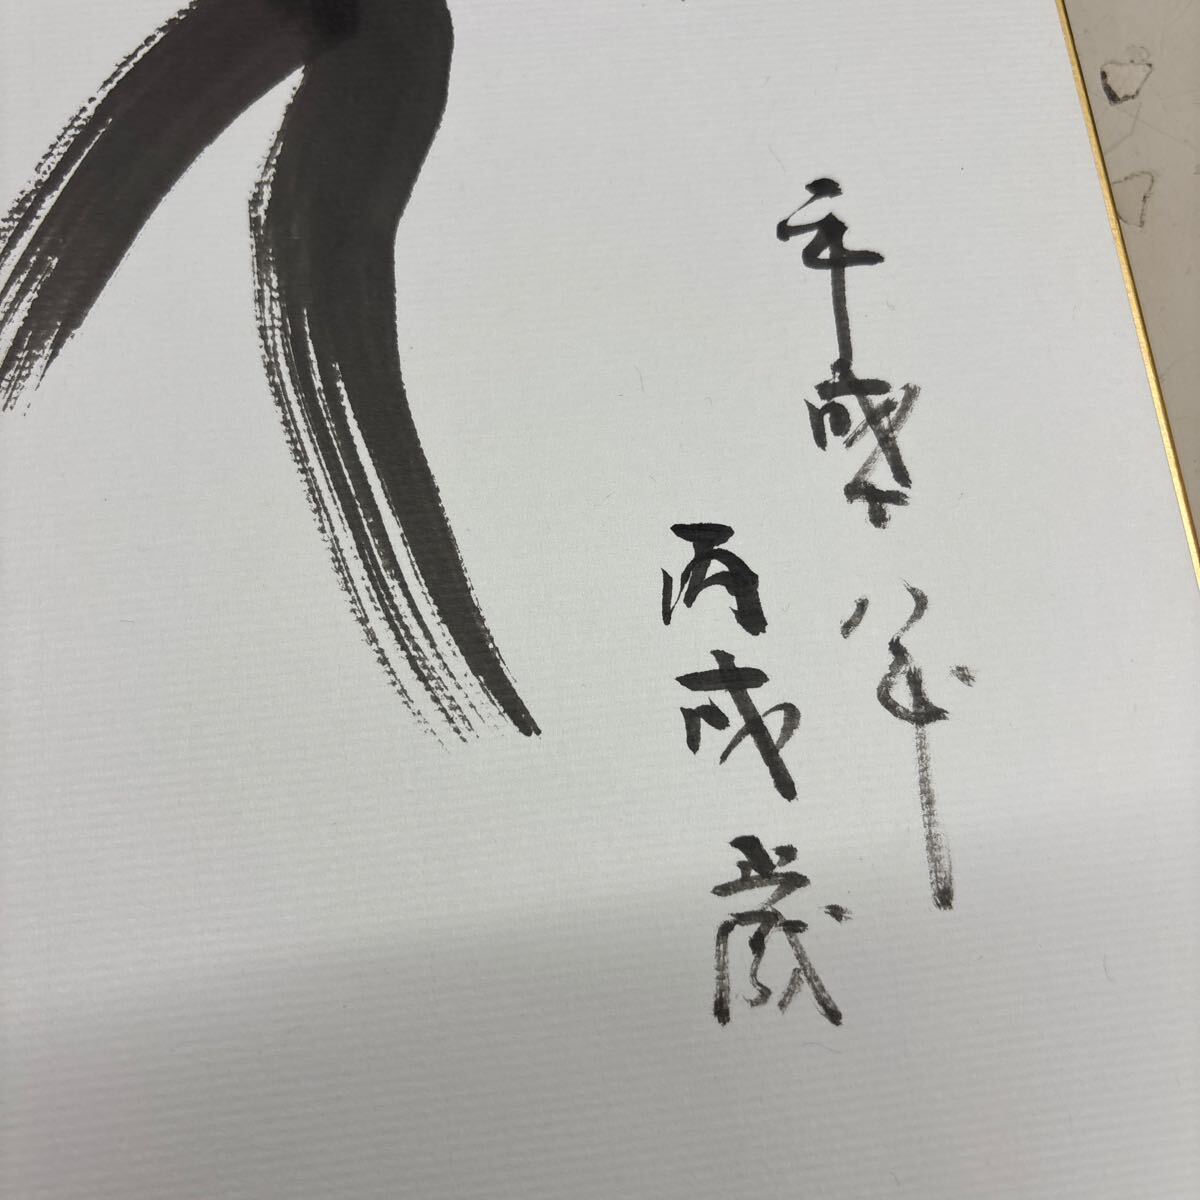 平成十八年
丙戌歳